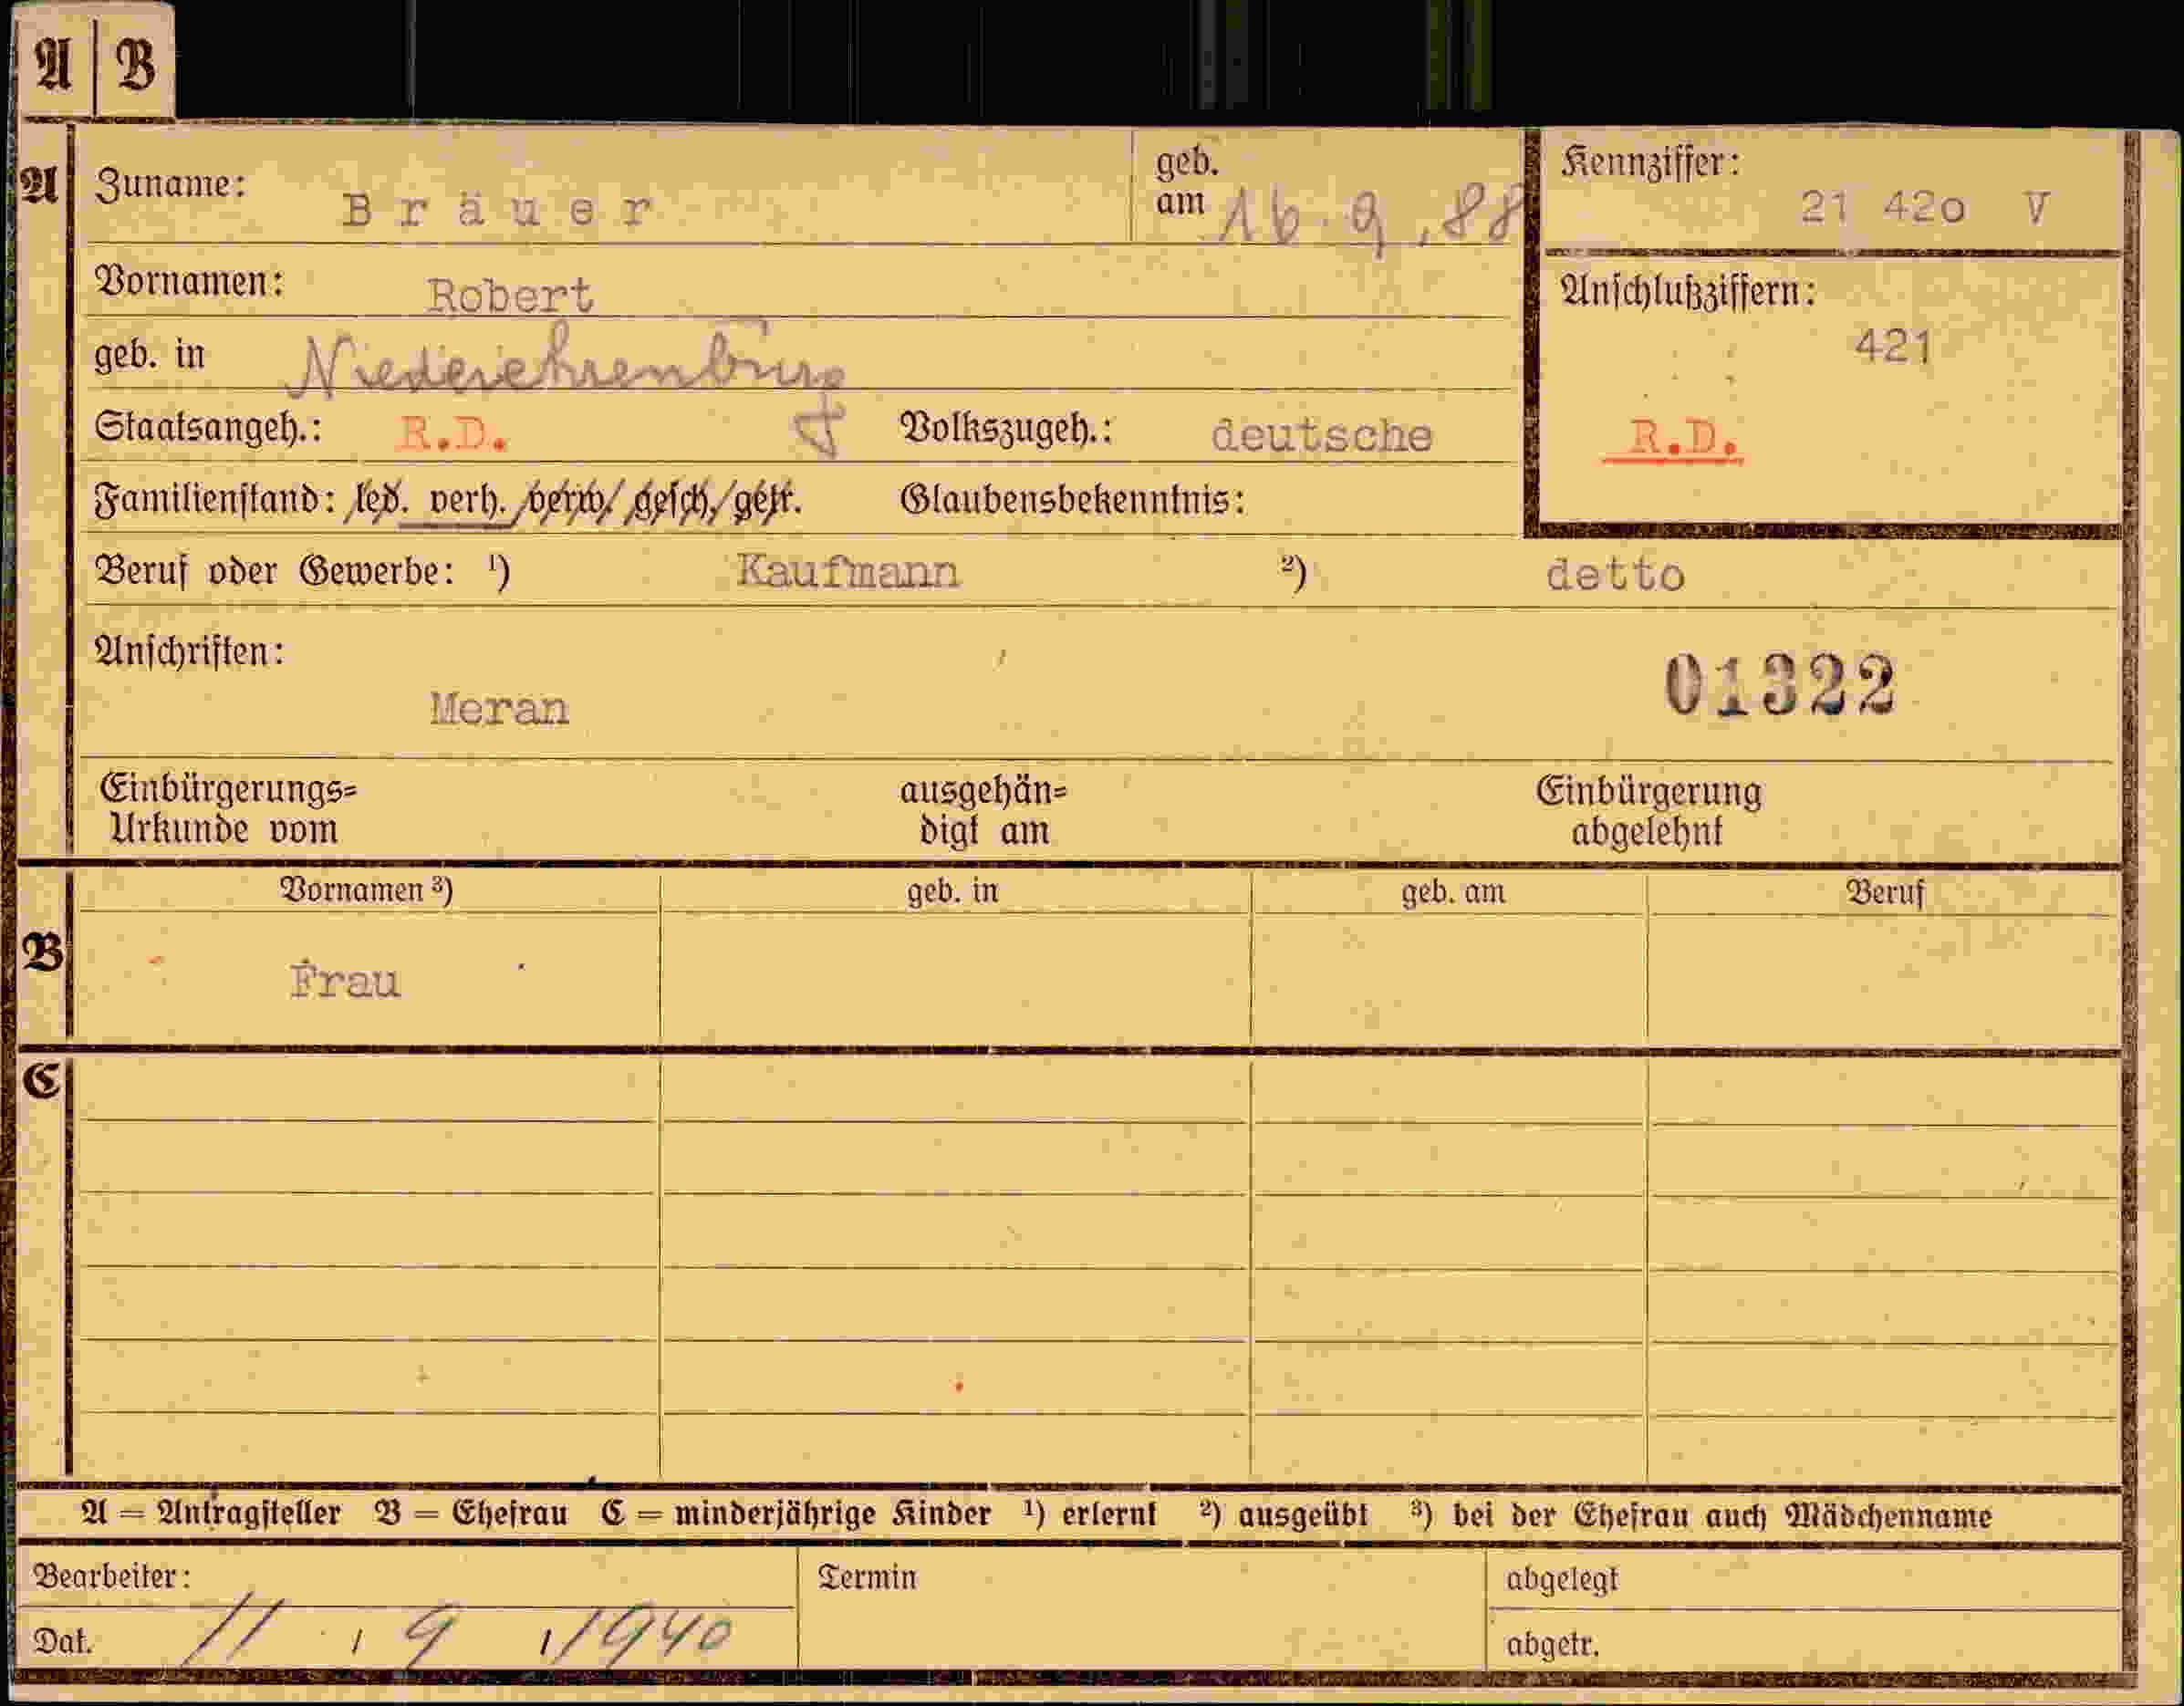 A | B
A Zuname: Bräuer geb. am 16.9.88 Kennziffer: 21 42o V
Vornamen: Robert Anschlußziffern: 421
geb. in
Staatsangeh.: R.D. Volkszugeh.: deutsche R.D.
Familienstand: led. verh. verw. gesch. getr. Glaubensbekenntnis:
Beruf oder Gewerbe: ¹) Kaufmann ²) detto
Anschriften:
Meran 01322
Einbürgerungs= Urkunde vom ausgehän= digt am Einbürgerung abgelehnt
Vornamen ³) geb. in geb. am Beruf
B Frau
C
A = Antragsteller B = Ehefrau C = minderjährige Kinder ¹) erlernt ²) ausgeübt ³) bei der Ehefrau auch Mädchenname
Bearbeiter: Termin abgelegt
Dat. 11.9.1940 abgetr.